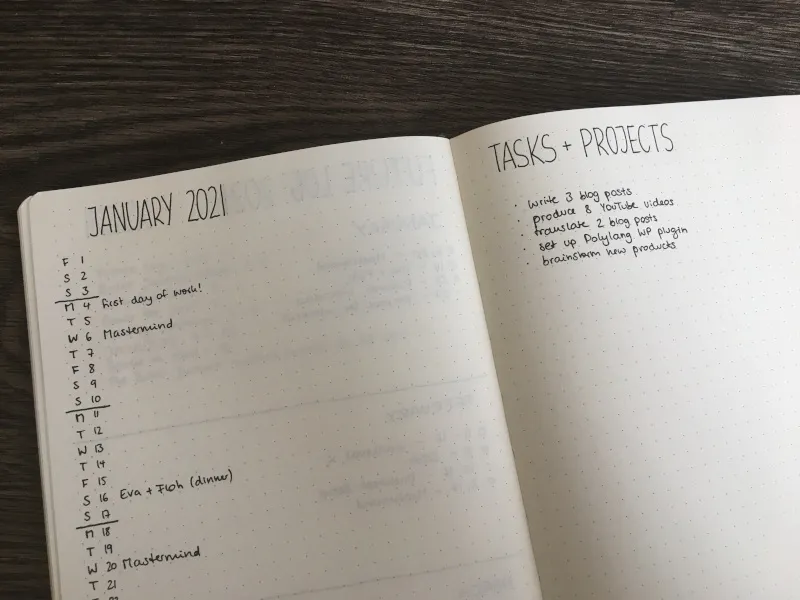 JANUARY 2021
F 1
S 2
S 3
M 4 first day of work!
T 5
W 6 Mastermind
T 7
F 8
S 9
S 10
M 11
T 12
W 13
T 14
F 15
S 16 Eva + Floh (dinner)
S 17
M 18
T 19
W 20 Mastermind
T 21
22
TASKS + PROJECTS
· write 3 blog posts
· produce 8 YouTube videos
· translate 2 blog posts
· set up Polylang WP plugin
· brainstorm new products